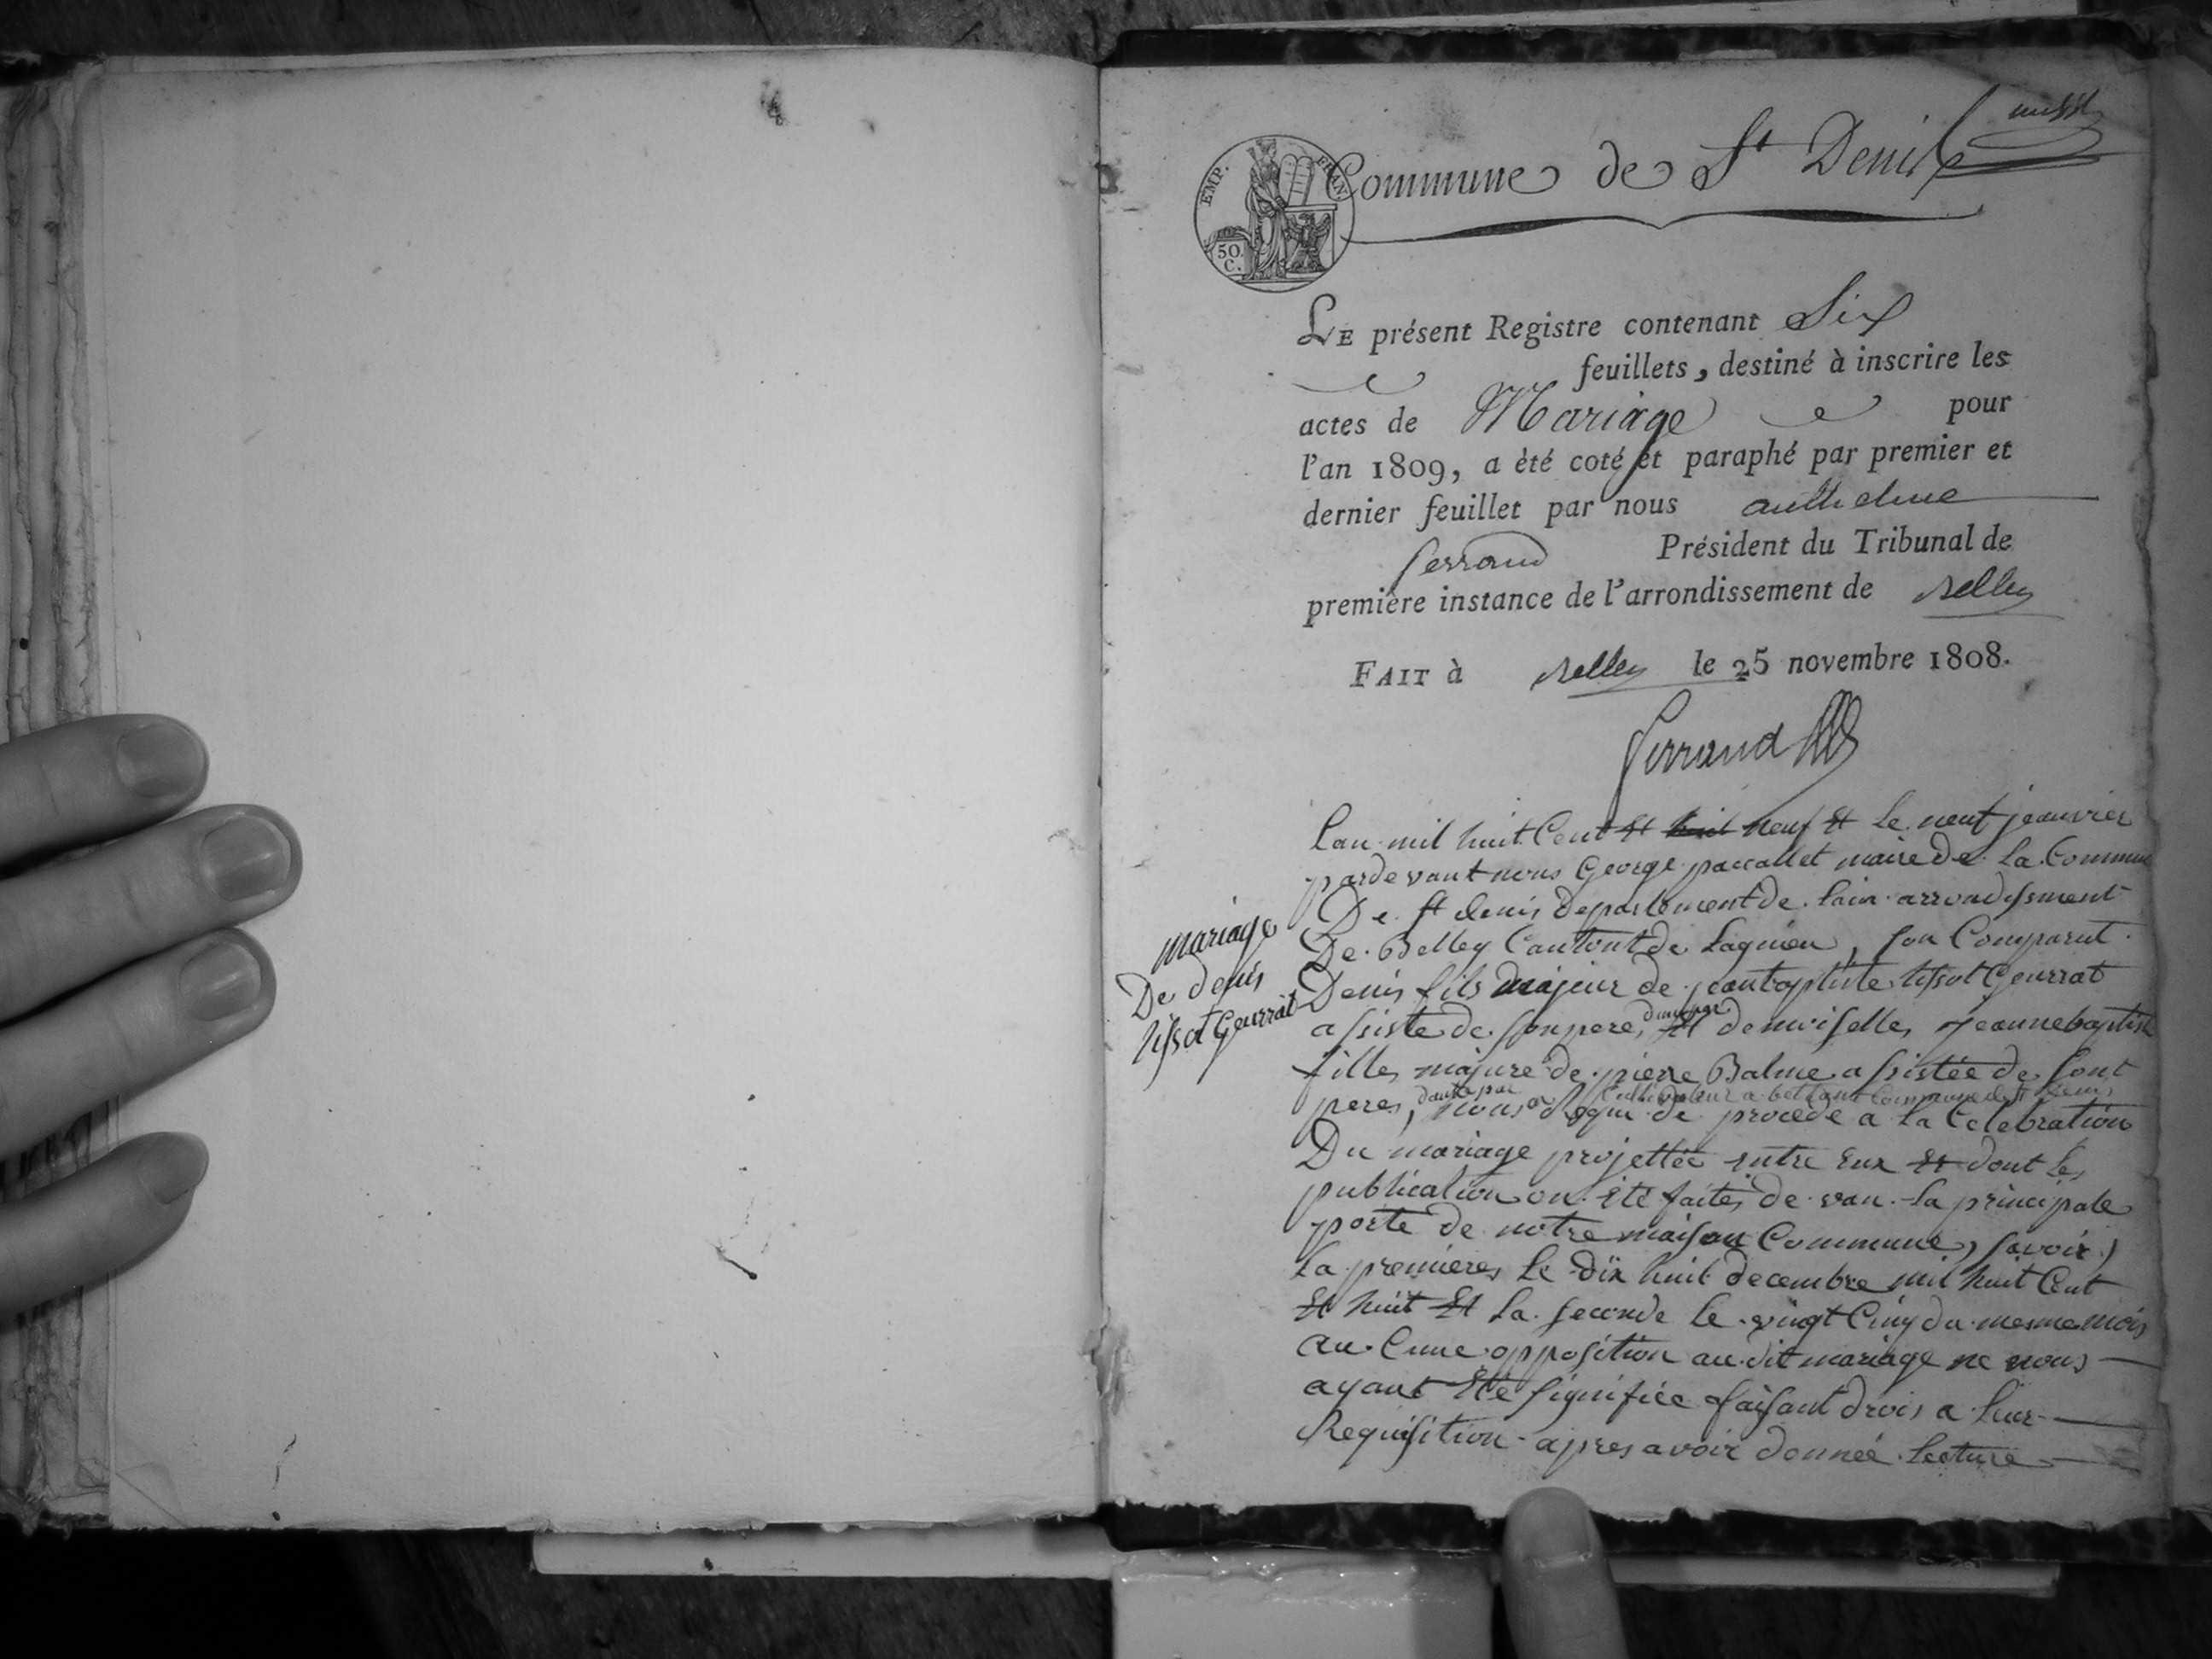 Commune de St Denis
EMP. FRAN.
50 C.
LE présent Registre contenant Six
feuillets, destiné à inscrire les
actes de Mariage pour
l'an 1809, a été coté et paraphé par premier et
dernier feuillet par nous anthelme
ferrand Président du Tribunal de
première instance de l'arrondissement de Belley
FAIT à Belley le 25 novembre 1808.
ferrand
Lan mil huit Cent Et huit neuf Et Le neuf jeanvier
parde vant nous George paccallet maire De La Commune
De st denis departement de lain arrondissment
De Belley Cantont de Lagnieu, son Comparut
mariage
De denis
tissot Geurrat
Denis fils majeur de jeantaptiste tissot Geurrat
assiste de son pere, dune par Et demoiselle, jeannebaptiste
fille majure de pierre Balme assistée de sont
pere, dautre par Cultivateur a bettant Commune de st denis
nous requi de procede a la Celebration
Du mariage projettée entre Eux Et dont les
publication on Eté faites de van la principale
porte de notre maison Commune, savoir,
la premiere le dix huit decembre mil huit Cent
Et huit Et la seconde le vingt Cinq du mesme mois
au Cune opposition au dit mariage ne nous
ayant Eté signifiée faisant drois a leur
Requisition apres avoir donnée lecture